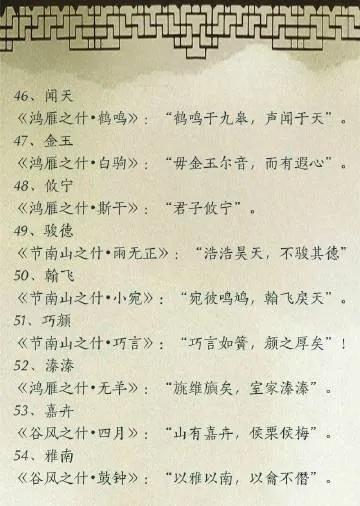 46、闻天
《鸿雁之什•鹤鸣》：“鹤鸣于九皋，声闻于天”。
47、金玉
《鸿雁之什•白驹》：“毋金玉尔音，而有遐心”。
48、攸宁
《鸿雁之什•斯干》：“君子攸宁”。
49、骏德
《节南山之什•雨无正》：“浩浩昊天，不骏其德”
50、翰飞
《节南山之什•小宛》：“宛彼鸣鸠，翰飞戾天”。
51、巧颜
《节南山之什•巧言》：“巧言如簧，颜之厚矣”！
52、溱溱
《鸿雁之什•无羊》：“旐维旟矣，室家溱溱”。
53、嘉卉
《谷风之什•四月》：“山有嘉卉，侯栗侯梅”。
54、雅南
《谷风之什•鼓钟》：“以雅以南，以龠不僭”。